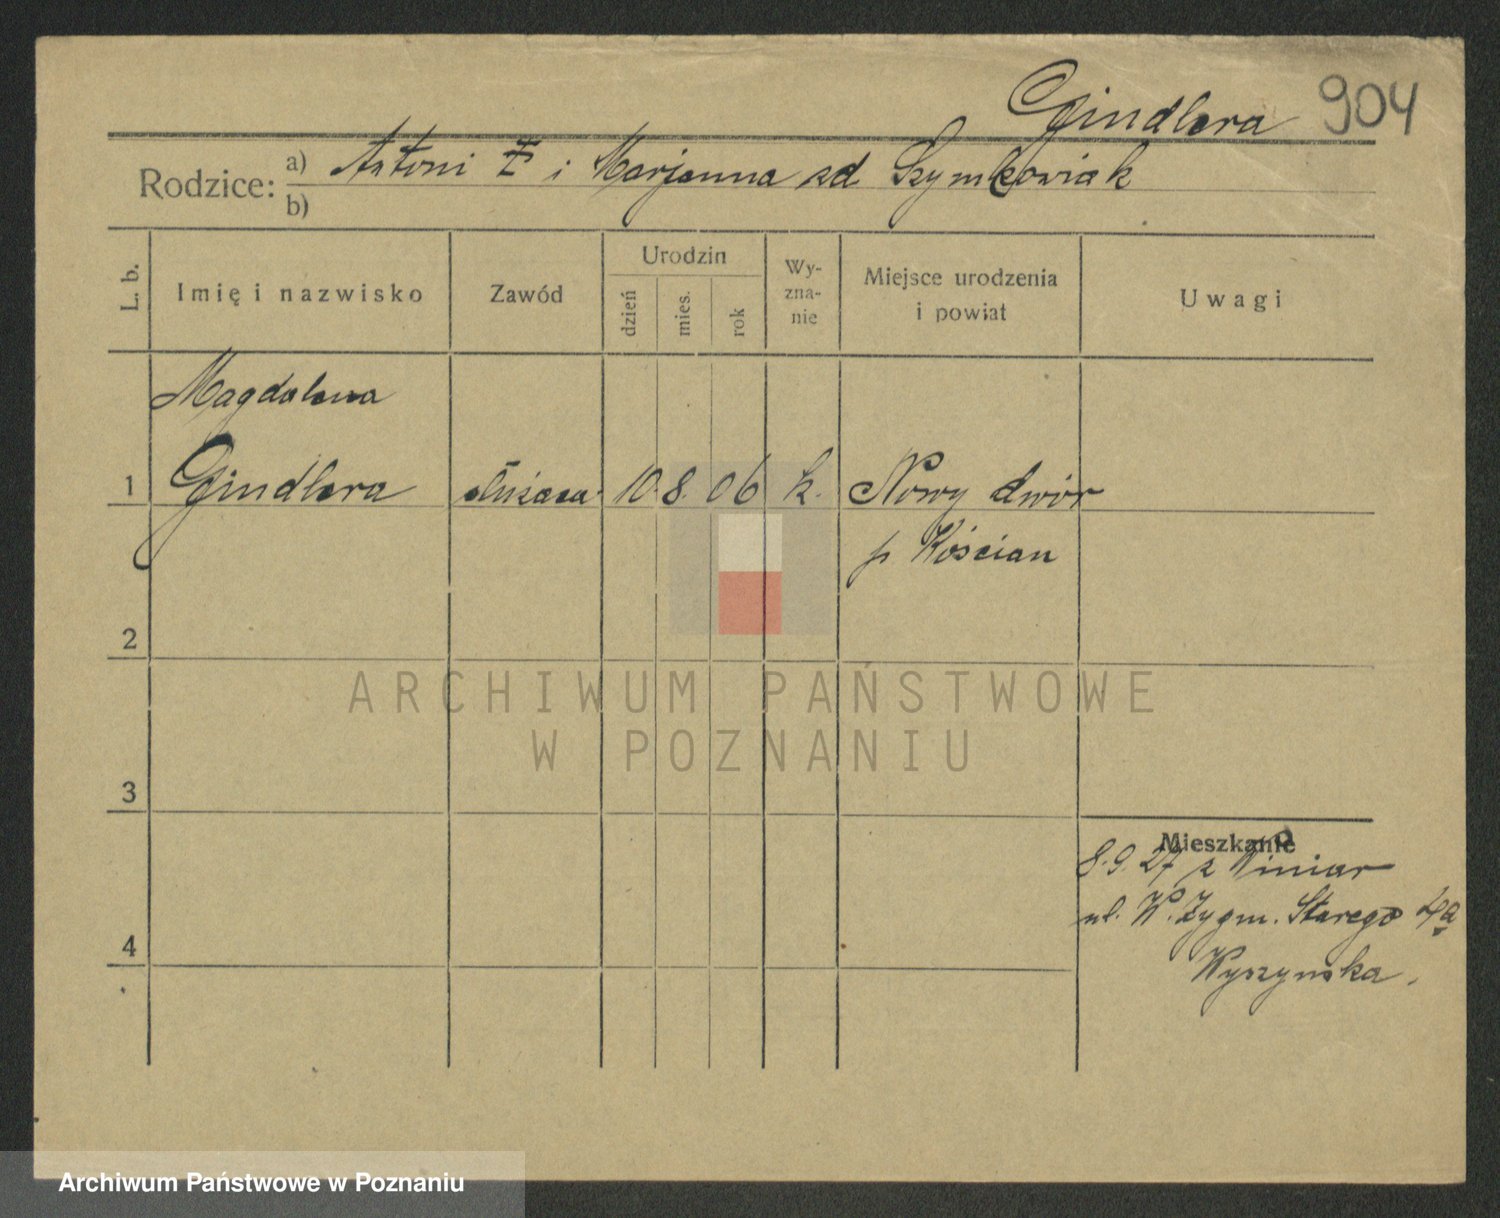 Gindlera 904
Rodzice: a) Antoni i Marjanna zd Szymkowiak
b)
L. b. Imię i nazwisko Zawód Urodzin dzień mies. rok Wy-zna-nie Miejsce urodzenia i powiat Uwagi
Magdalena
1 Gindlera służąca 10. 8. 06 k. Nowy dwór
p Kościan
2
ARCHIWUM PAŃSTWOWE
W POZNANIU
3
Mieszkanie
8.9.27 z Winiar
ul. W. Zygm. Starego 4a
4
Wyszyńska.
Archiwum Państwowe w Poznaniu